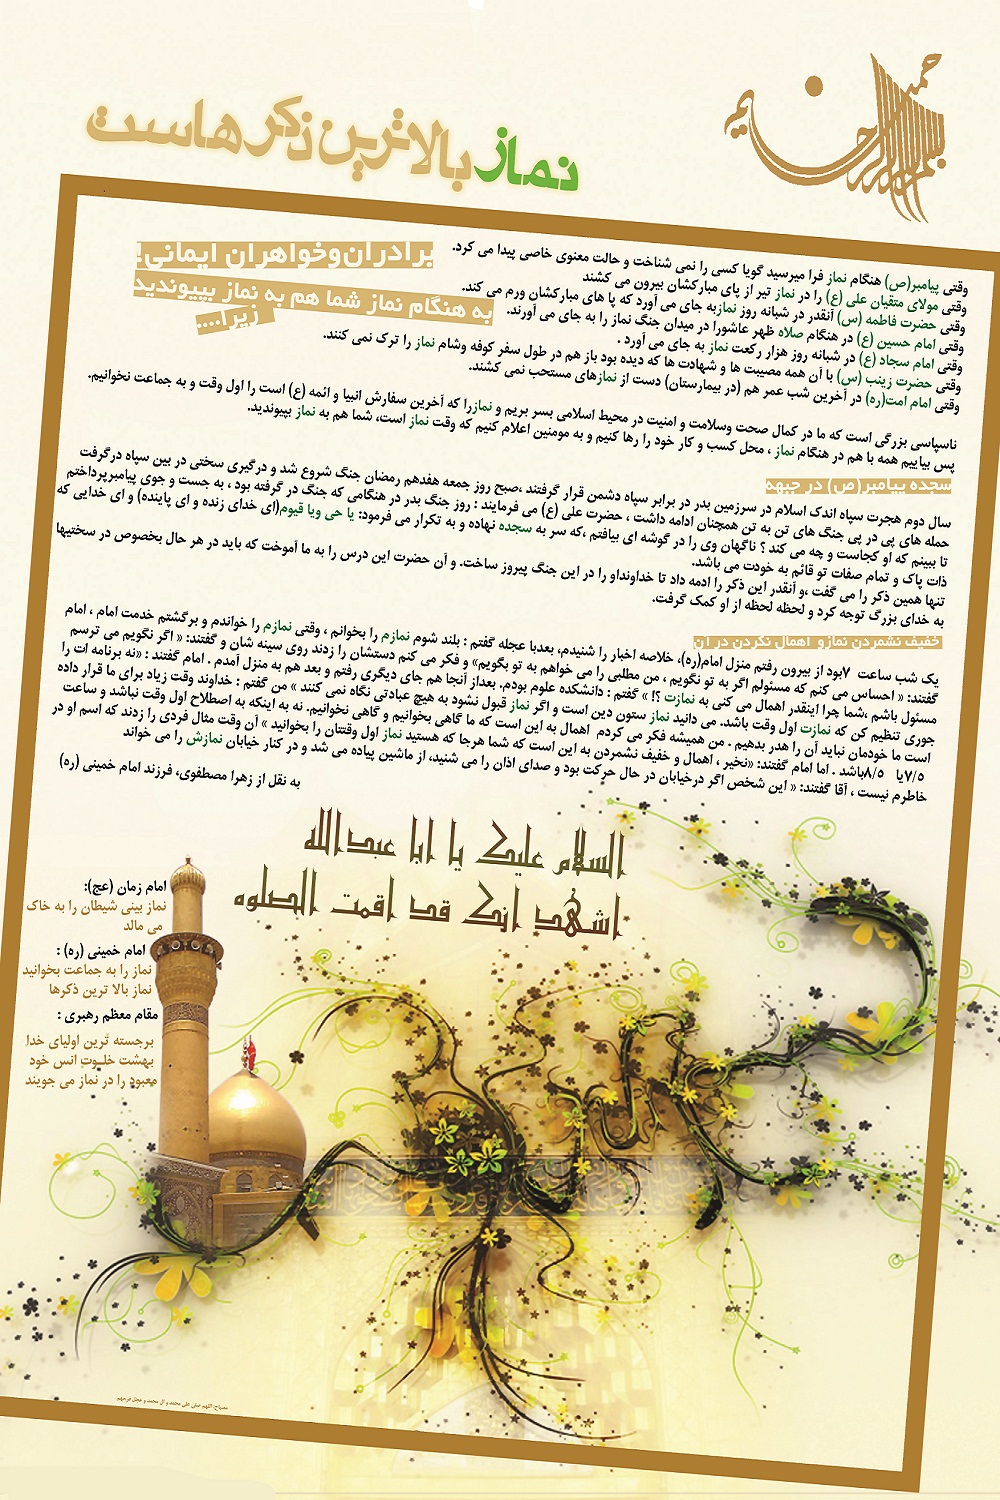 بسم الله الرحمن الرحیم
نماز بالاترین ذکر هاست
برادران‌وخواهران ایمانی!
به هنگام نماز شما هم به نماز بپیوندید
زیرا....
وقتی پیامبر(ص) هنگام نماز فرا میرسید گویا کسی را نمی شناخت و حالت معنوی خاصی پیدا می کرد.
وقتی مولای متقیان علی (ع) را در نماز تیر از پای مبارکشان بیرون می کشند
وقتی حضرت فاطمه (س) آنقدر در شبانه روز نمازبه جای می آورد که پا های مبارکشان ورم می کند.
وقتی امام حسین (ع) در هنگام صلاه ظهر عاشورا در میدان جنگ نماز را به جای می آورند.
وقتی امام سجاد (ع) در شبانه روز هزار رکعت نماز به جای می آورد .
وقتی حضرت زینب (س) با آن همه مصیبت ها و شهادت ها که دیده بود باز هم در طول سفر کوفه وشام نماز را ترک نمی کنند.
وقتی امام امت(ره) در آخرین شب عمر هم (در بیمارستان) دست از نمازهای مستحب نمی کشند.
ناسپاسی بزرگی است که ما در کمال صحت وسلامت و امنیت در محیط اسلامی بسر بریم و نمازرا که آخرین سفارش انبیا و ائمه (ع) است را اول وقت و به جماعت نخوانیم.
پس بیاییم همه با هم در هنگام نماز ، محل کسب و کار خود را رها کنیم و به مومنین اعلام کنیم که وقت نماز است، شما هم به نماز بپیوندید.
سجده پیامبر(ص) در جبهه
سال دوم هجرت سپاه اندک اسلام در سرزمین بدر در برابر سپاه دشمن قرار گرفتند ،صبح روز جمعه هفدهم رمضان جنگ شروع شد و درگیری سختی در بین سپاه درگرفت
حمله های پی در پی جنگ های تن به تن همچنان ادامه داشت ، حضرت علی (ع) می فرمایند : روز جنگ بدر در هنگامی که جنگ در گرفته بود ، به جست و جوی پیامبرپرداختم
تا ببینم که او کجاست و چه می کند ؟ ناگهان وی را در گوشه ای بیافتم ،که سر به سجده نهاده و به تکرار می فرمود: یا حی ویا قیوم(ای خدای زنده و ای پاینده) و ای خدایی که
ذات پاک و تمام صفات تو قائم به خودت می باشد.
تنها همین ذکر را می گفت ،و آنقدر این ذکر را ادمه داد تا خداونداو را در این جنگ پیروز ساخت. و آن حضرت این درس را به ما آموخت که باید در هر حال بخصوص در سختیها
به خدای بزرگ توجه کرد و لحظه لحظه از او کمک گرفت.
خفیف نشمردن نمازو اهمال نکردن در آن
یک شب ساعت ۷بود از بیرون رفتم منزل امام(ره)، خلاصه اخبار را شنیدم، بعدبا عجله گفتم : بلند شوم نمازم را بخوانم ، وقتی نمازم را خواندم و برگشتم خدمت امام ، امام
گفتند: « احساس می کنم که مسئولم اگر به تو نگویم ، من مطلبی را می خواهم به تو بگویم» و فکر می کنم دستشان را زدند روی سینه شان و گفتند: « اگر نگویم می ترسم
مسئول باشم ،شما چرا اینقدر اهمال می کنی به نمازت ؟! » گفتم : دانشکده علوم بودم. بعداز آنجا هم جای دیگری رفتم و بعد هم به منزل آمدم . امام گفتند : «نه برنامه ات را
جوری تنظیم کن که نمازت اول وقت باشد. می دانید نماز ستون دین است و اگر نماز قبول نشود به هیچ عبادتی نگاه نمی کنند » من گفتم : خداوند وقت زیاد برای ما قرار داده
است ما خودمان نباید آن را هدر بدهیم . من همیشه فکر می کردم اهمال به این است که ما گاهی بخوانیم و گاهی نخوانیم. نه به اینکه به اصطلاح اول وقت نباشد و ساعت
۷/۵یا ۸/۵باشد . اما امام گفتند: «نخیر ، اهمال و خفیف نشمردن به این است که شما هرجا که هستید نماز اول وقتتان را بخوانید » آن وقت مثال فردی را زدند که اسم او در
خاطرم نیست ، آقا گفتند: « این شخص اگر درخیابان در حال حرکت بود و صدای اذان را می شنید، از ماشین پیاده می شد و در کنار خیابان نمازش را می خواند
به نقل از زهرا مصطفوی، فرزند امام خمینی (ره)
السلام علیک یا ابا عبدالله
اشهد انک قد اقمت الصلوه
امام زمان (عج):
نماز بینی شیطان را به خاک
می مالد
امام خمینی (ره) :
نماز را به جماعت بخوانید
نماز بالا ترین ذکرها
مقام معظم رهبری :
برجسته ترین اولیای خدا
بهشت خلوت انس خود
معبود را در نماز می جویند
مصباح: اللهم صلی علی محمد و آل محمد و عجل فرجهم